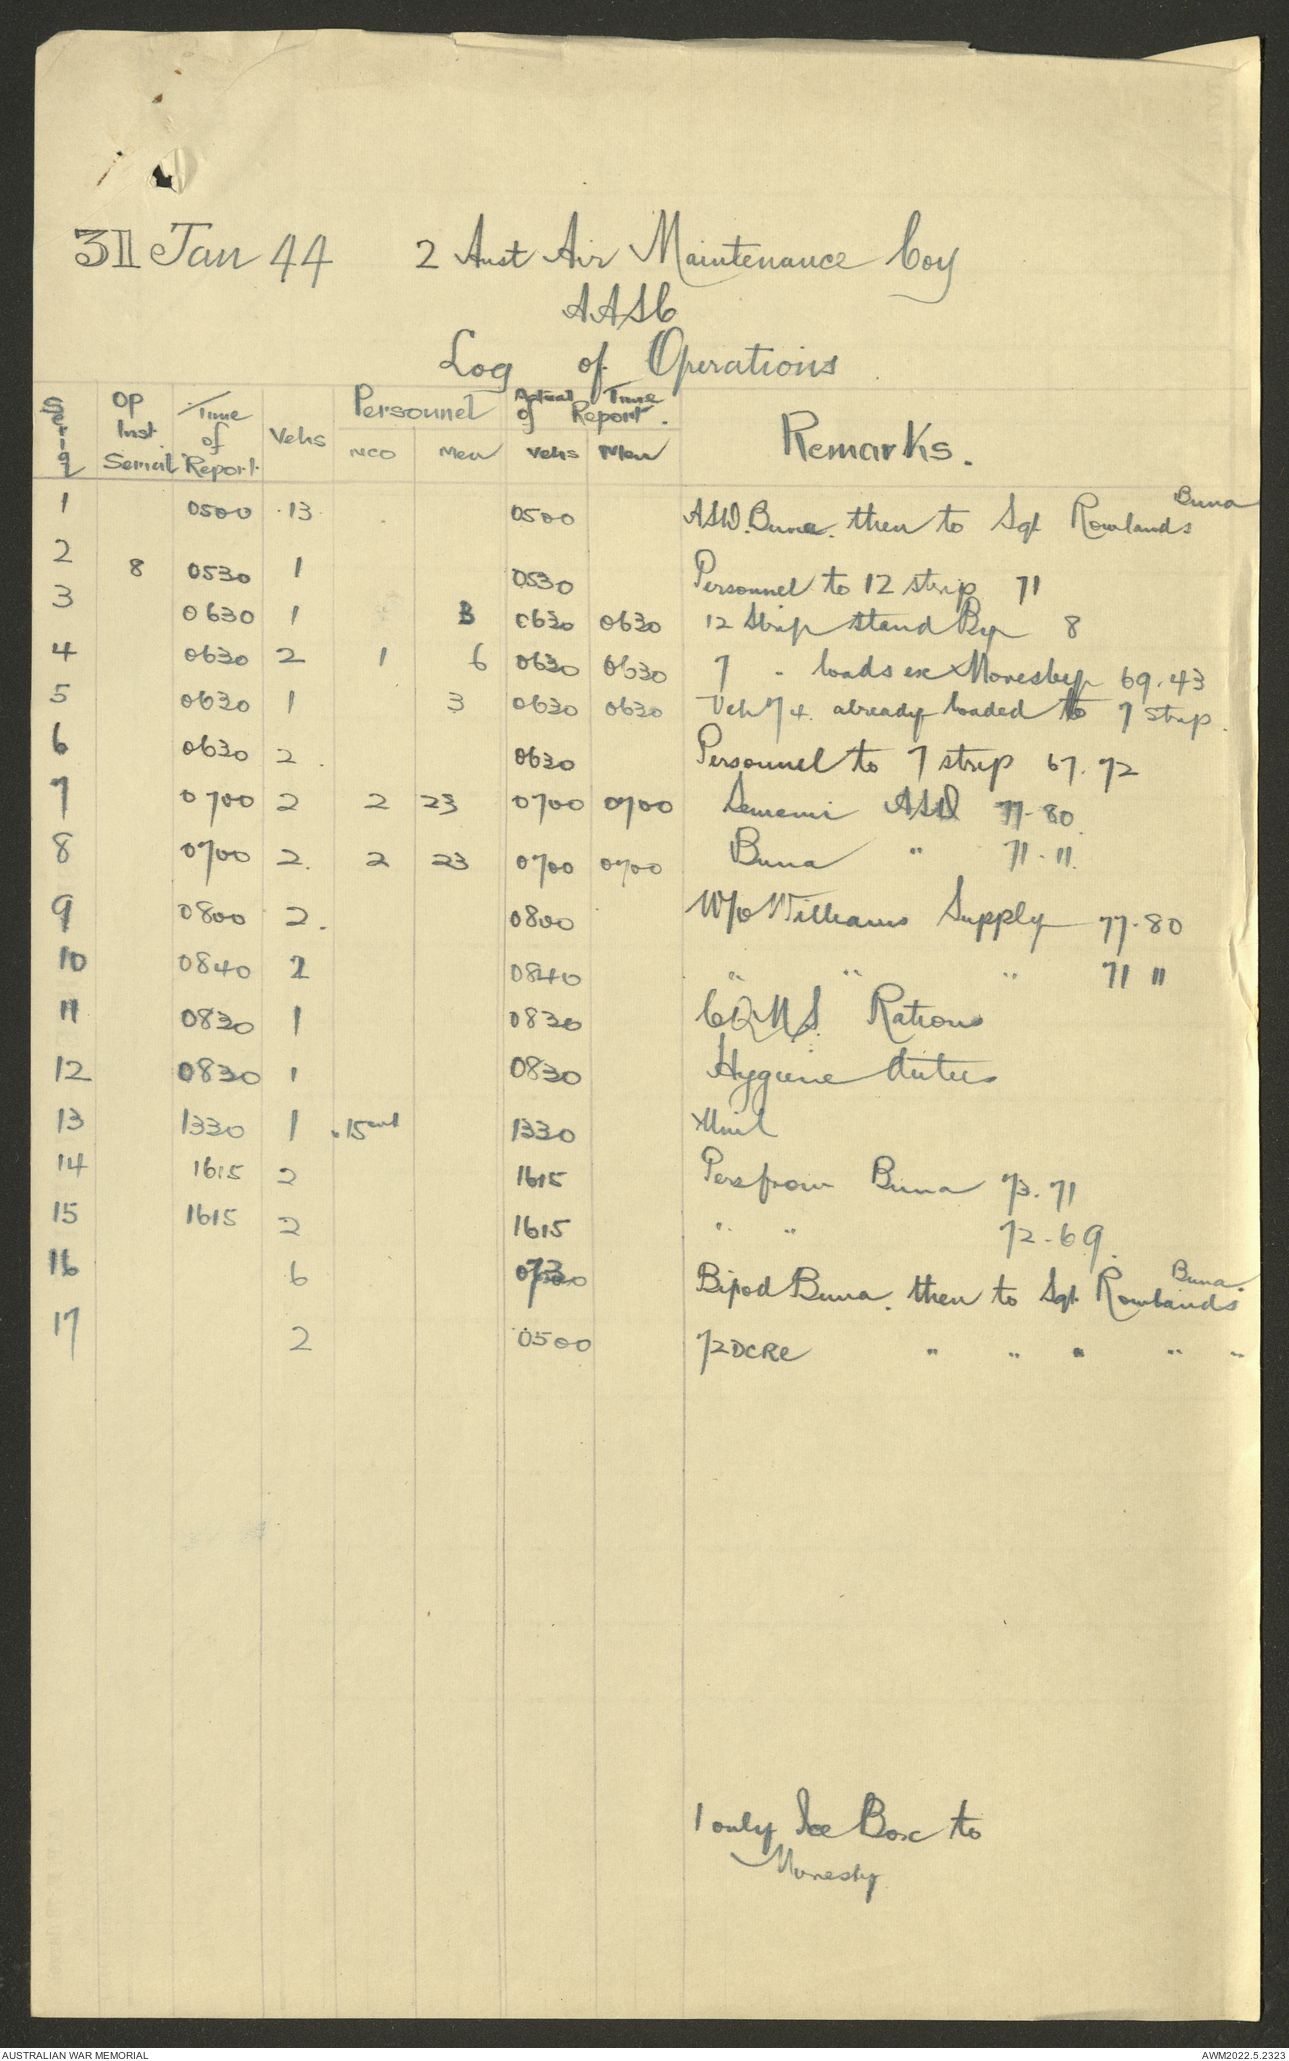 31 Jan 44 2 Aust Air Maintenance Coy
AASC
Log of Operations
Serial Op Inst Serial Time of Report Vehs Personnel NCO Men Actual Time of Report Vehs Men Remarks.
1 0500 13 0500 ASD. Buna. then to Sgt Rowlands Buna
2 8 0530 1 0530 Personnel to 12 strip 71
3 0630 1 3 0630 0630 12 Strip stand By 8
4 0630 2 1 6 0630 0630 7 " loads ex Moresby 69.43
5 0630 1 3 0630 0630 Veh 74 already loaded to 7 strip.
6 0630 2. 0630 Personnel to 7 strip 67. 72
7 0700 2 2 23 0700 0700 Sememi ASD 77-80
8 0700 2. 2 23 0700 0700 Buna " 71-11.
9 0800 2. 0800 W/o Williams Supply 77-80
10 0840 2 0840 " " " 71 11
11 0830 1 0830 CQMS. Rations
12 0830 1 0830 Hygiene duties
13 1330 1 .15cwt 1330
14 1615 2 1615 Pers from Buna 73.71
15 1615 2 1615 " " 72-69.
16 6 Bipod Buna. then to Sgt Rowlands Buna.
17 2 0500 72 DCRE " " " " "
1 only Ice Box to
Moresby
AUSTRALIAN WAR MEMORIAL AWM2022.5.2323